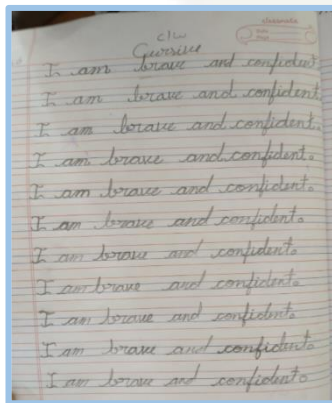 classmate
Date
Page
C/W
Cursive
I am brave and confident
I am brave and confident.
I am brave and confident.
I am brave and confident.
I am brave and confident.
I am brave and confident.
I am brave and confident.
I am brave and confident.
I am brave and confident.
I am brave and confident.
I am brave and confident.